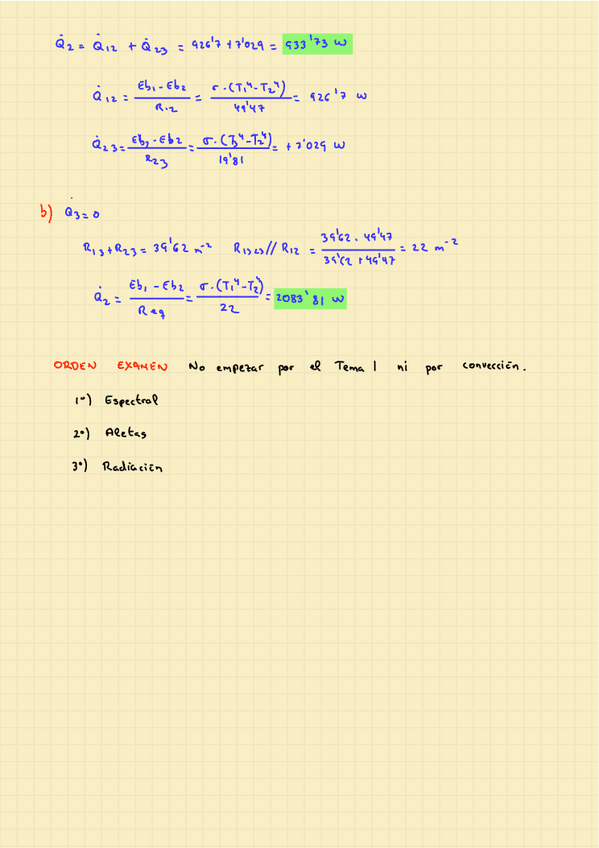 Q̇2 = Q̇12 + Q̇23 = 926'7 + 7'029 = 933'73 W
Q̇12 = Eb1 - Eb2 / R12 = σ·(T1⁴-T2⁴) / 49'47 = 926'7 W
Q̇23 = Eb3 - Eb2 / R23 = σ·(T3⁴-T2⁴) / 19'81 = +7'029 W
b) Q̇3 = 0
R13 + R23 = 39'62 m⁻² R1323 // R12 = 39'62 · 49'47 / 39'62 + 49'47 = 22 m⁻²
Q̇2 = Eb1 - Eb2 / Req = σ·(T1⁴-T2⁴) / 22 = 2083'81 W
ORDEN EXAMEN No empezar por el Tema 1 ni por convección.
1º) Espectral
2º) Aletas
3º) Radiación